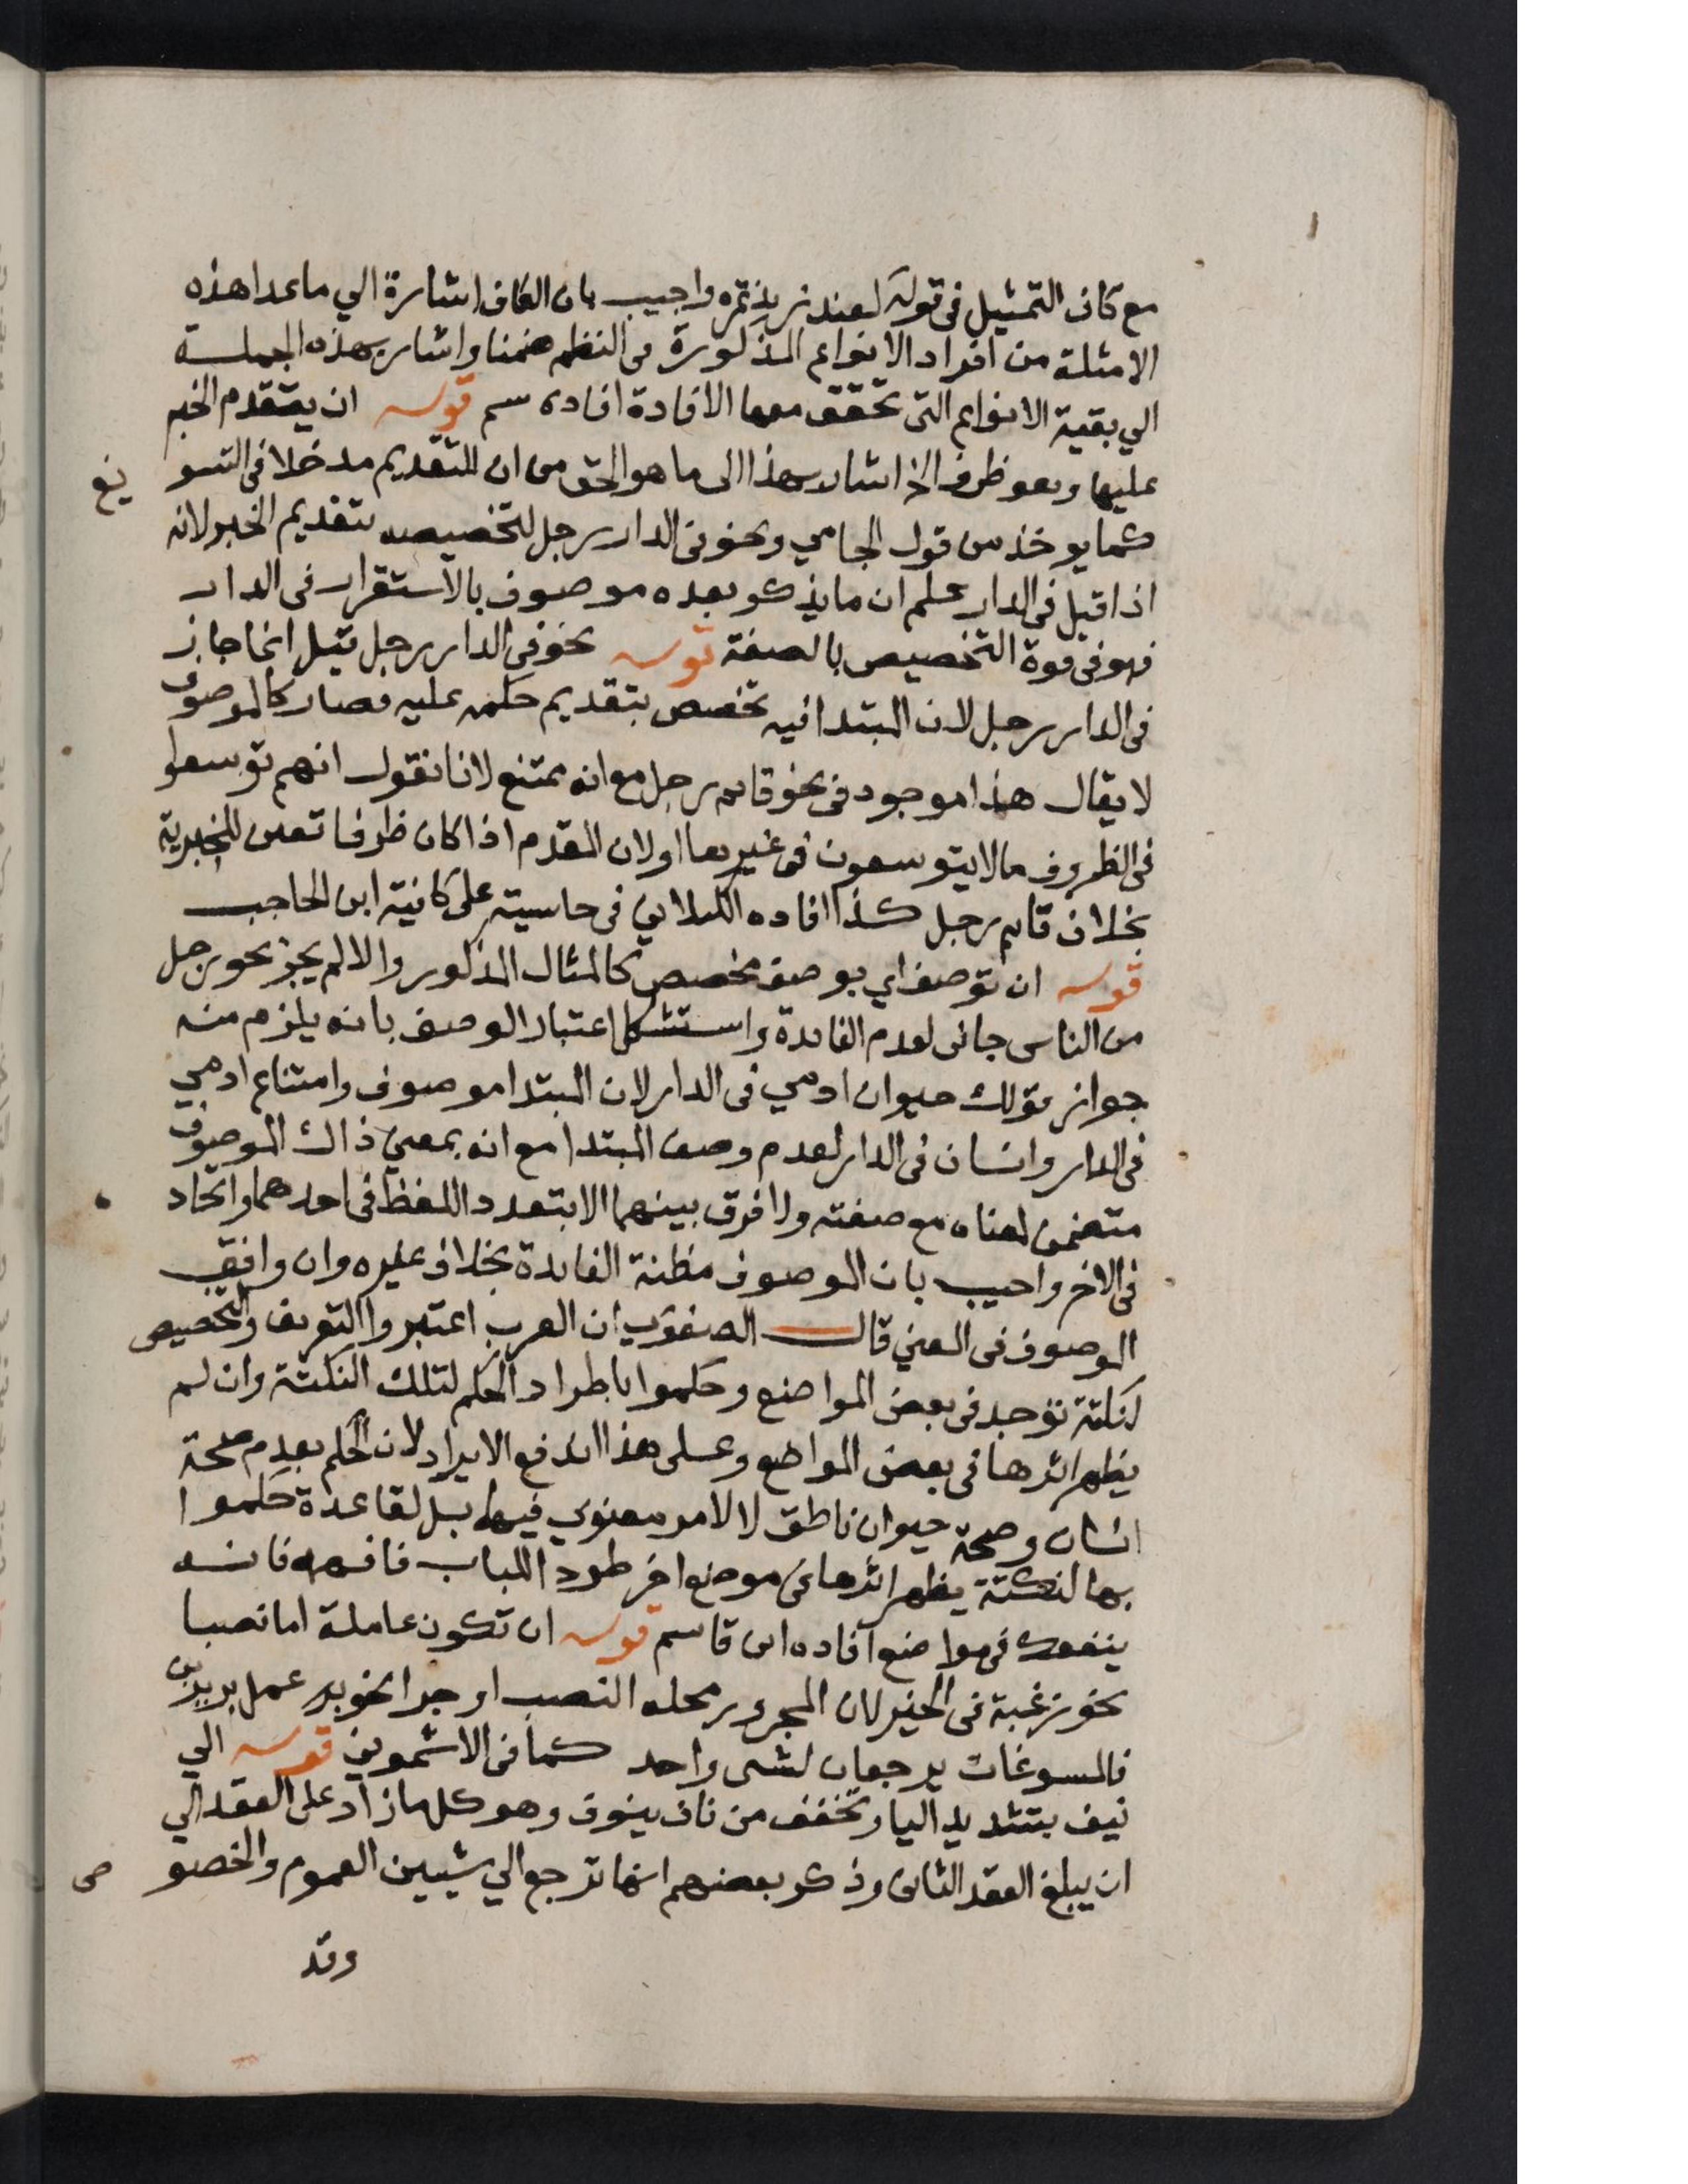 مع كاف التمثيل فى قوله لعند زيد نمره واجيب بان الكاف اشارة الي ما عدا هذه
الامثلة من افراد الانواع المذكورة فى النظم ضمنا واشار بهذه الجملة
الي بقية الانواع التى تحقق معها الافادة افاده سم قوله ان يتقدم الخبر
عليها وهو ظرف الخ اشار بهذا الى ما هو الحق من ان للتقديم مدخلا فى التسو
يغ
كما يوخذ من قول الجامي ونحو فى الدار رجل لتخصيصه بتقديم الخبر لانه
اذا قيل فى الدار علم ان ما يذكر بعده موصوف بالاستقرار فى الدار
فهو فى قوة التخصيص بالصفة قوله نحو فى الدار رجل قيل انما جاز
فى الدار رجل لان المبتدا فيه تخصص بتقديم حكمه عليه فصار كالموصوف
لا يقال هذا موجود فى نحو قايم رجل مع انه ممتنع لانا نقول انهم توسعوا
فى الظروف ما لا يتوسعون فى غيرها اولان المقدم اذا كان ظرفا تعين للخبرية
بخلاف قايم رجل كذا افاده الكيلاني فى حاسيته على كافية ابن الحاجب
قوله ان توصف اي بوصف مخصص كالمثال المذكور والا لم يجز نحو رجل
من الناس جانى لعدم الفايدة واستشكل اعتبار الوصف بانه يلزم منه
جواز قولك حيوان ادمي فى الدار لان المبتدا موصوف وامتناع ادمي
فى الدار وانسان فى الدار لعدم وصف المبتدا مع انه بمعنى ذاك الموصوف
متضمن لمعناه مع صفته ولا فرق بينهما الا بتعدد اللفظ فى احدهما واتحاد
فى الاخر واجيب بان الموصوف مظنة الفايدة بخلاف غيره وان وافق
الموصوف فى المعنى قال الصفوي ان العرب اعتبروا التعريف والتخصيص
لنكتة توجد فى بعض المواضع وحكموا باطراد الحكم لتلك النكتة وان لم
يظهر اثرها فى بعض المواضع وعلى هذا اندفع الايراد لان الحكم بعدم صحة
انسان وصحة حيوان ناطق لا لامر معنوي فيها بل لقاعدة حكموا
بها لنكتة يظهر اثرها فى موضع اخر طرد اللباب فافهمه فانه
ينفعك فى مواضع افاده ابن قاسم قوله ان تكون عاملة اما نصبا
نحو رغبة فى الخير لان المجرور محله النصب او جرا نحو بر عمل بر يزين
فالمسوغات يرجعان لشى واحد كما فى الاشموني قوله الي
نيف بتشديد اليا وتخفف من ناف ينوف وهو كلما زاد على العقد الي
ان يبلغ العقد الثانى وذكر بعضهم انها ترجع الي شيين العموم والخصو
ص
وقد